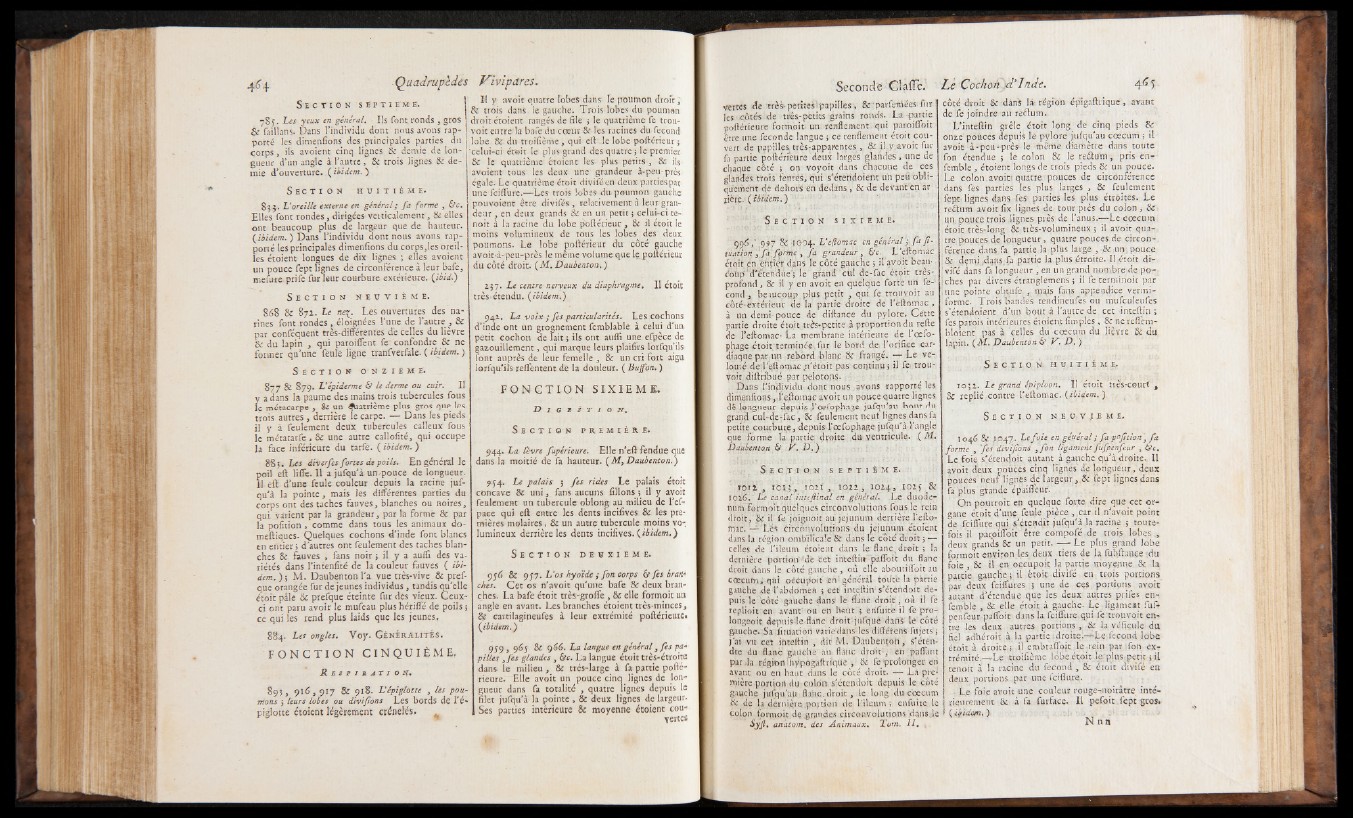 464
Quadrupèdes Vivipares.
SECTION SEPTIEME.
785. Les yeux en général. Ils ſont ronds, gros
& ſaillans. Dans l'individu dont nous avons rap-
porté les dimenſions des principales parties du
corps, ils avoient cinq lignes & demie de lon-
gueur d'un angle à l'autre, & trois lignes & de-
mie d'ouverture. (ibidem.)
SECTION HUITIÈME.
833. L'oreille externe en général; ſa forme, &c.
Elles ſont rondes, dirigées verticalement, & elles
ont beaucoup plus de largeur que de hauteur.
(ibidem.) Dans l'individu dont nous avons rap-
porté les principales dimenſions du corps, les oreil-
les étoient longues de dix lignes; elles avoient
un pouce ſept lignes de circonférence à leur baſe,
meſure priſe ſur leur courbure extérieure. (ibid.)
SECTION NEUVIÈME.
868 & 872. Le nez. Les ouvertures des na-
rines ſont rondes, éloignées l'une de l'autre, &
par conſéquent très-différentes de celles du lièvre
& du lapin, qui paroiſſent ſe confondre & ne
former qu'une ſeule ligne tranſverſale. (ibidem.)
SECTION ONZIEME.
877 & 879. L'épiderme & le derme ou cuir. Il
y a dans la paume des mains trois tubercules ſous
le métacarpe, & un quatrième plus gros que les
trois autres, derrière le carpe. — Dans les pieds
il y a ſeulement deux tubercules calleux ſous
le métatarſe, & une autre calloſité, qui occupe
la face inférieure du tarſe. (ibidem.)
881. Les diverſes ſortes de poils. En général le
poil eſt liſſe. Il a juſqu'à un pouce de longueur.
Il eſt d'une ſeule couleur depuis la racine juſ-
qu'à la pointe, mais les différentes parties du
corps ont des taches fauves, blanches ou noires,
qui varient par la grandeur, par la forme & par
la poſition, comme dans tous les animaux do-
meſtiques. Quelques cochons d'inde ſont blancs
en entier; d'autres ont ſeulement des taches blan-
ches & fauves, ſans noir; il y a auſſi des va-
riétés dans l'intenſité de la couleur fauves (ibi-
dem.); M. Daubenton l'a vue très-vive & preſ-
que orangée ſur de jeunes individus, tandis qu'elle
étoit pâle & preſque éteinte ſur des vieux. Ceux-
ci ont paru avoir le muſeau plus hériſſé de poils;
ce qui les rend plus laids que les jeunes.
884. Les ongles. Voy. GÉNÉRALITÉS.
FONCTION CINQUIÈME.
RESPIRATION.
893, 916, 917 & 918. L'épiglotte, les pou-
mons; leurs lobes ou diviſions Les bords de l'é-
piglotte étoient légèrement crénelés.
Il y avoit quatre lobes dans le poumon droit,
& trois dans le gauche. Trois lobes du poumon
droit étoient rangés de file; le quatrième ſe trou-
voit entre la baſe du cœur & les racines du ſecond
lobe & du troiſième, qui eſt le lobe poſtérieur;
celui-ci étoit le plus grand des quatre; le premier
& le quatrième étoient les plus petits, & ils
avoient tous les deux une grandeur à-peu près
égale. Le quatrième étoit diviſé en deux parties par
une ſciſſure.—Les trois lobes du poumon gauche
pouvoient être diviſés, relativement à leur gran-
deur, en deux grands & en un petit; celui-ci te-
noit à la racine du lobe poſtérieur, & il étoit le
moins volumineux de tous les lobes des deux
poumons. Le lobe poſtérieur du côté gauche
avoit à-peu-près le même volume que le poſtérieur
du côté droit. (M. Daubenton.)
237. Le centre nerveux du diaphragme. Il étoit
très-étendu. (ibidem.)
942. La voix; ſes particularités. Les cochons
d'inde ont un grognement ſemblable à celui d'un
petit cochon de lait; ils ont auſſi une eſpèce de
gazouillement, qui marque leurs plaiſirs lorſqu'ils
ſont auprès de leur femelle, & un cri fort aigu
lorſqu'ils reſſentent de la douleur. (Buffon.)
FONCTION SIXIEME.
DIGESTION.
SECTION PREMIÈRE.
944. La lèvre ſupérieure. Elle n'eſt fendue que
dans la moitié de ſa hauteur. (M, Daubenton.)
954. Le palais; ſes rides Le palais étoit
concave & uni, ſans aucuns ſillons; il y avoit
ſeulement un tubercule oblong au milieu de l'eſ-
pace qui eſt entre les dents inciſives & les pre-
mières molaires, & un autre tubercule moins vo-
lumineux derrière les dents inciſives. (ibidem.)
SECTION DEUXIEME.
956 & 957. L'os hyoïde; ſon corps & ſes bran-
ches. Cet os n'avoit qu'une baſe & deux bran-
ches. La baſe étoit très-groſſe, & elle formoit un
angle en avant. Les branches étoient très-minces,
& cartilagineuſes à leur extrémité poſtérieure.
(ibidem.)
959, 965 & 966. La langue en général, ſes pa-
pilles, ſes glandes, &c. La langue étoit très-étroite
dans le milieu, & très-large à ſa partie poſté-
rieure. Elle avoit un pouce cinq lignes de lon-
gueur dans ſa totalité, quatre lignes depuis le
filet juſqu'à la pointe, & deux lignes de largeur.
Ses parties intérieure & moyenne étoient cou-
vertes
Seconde Claſſe. Le Cochon d'Inde.
465
vertes de très-petites papilles, & parſemées ſur
les côtés de très-petits grains ronds. La partie
poſtérieure formoit un renflement qui paroiſſoit
être une ſeconde langue; ce renflement étoit cou-
vert de papilles très-apparentes, & il y avoit ſur
ſa partie poſtérieure deux larges glandes, une de
chaque côté; on voyoit dans chacune de ces
glandes trois fentes, qui s'étendoient un peu obli-
quement de dehors en dedans, & de devant en ar-
rière. (ibidem.)
SECTION SIXIEME.
996, 997 & 1004. L'eſtomac en général; ſa ſi-
tuation, ſa forme, ſa grandeur, &c. L'eſtomac
étoit en entier dans le côté gauche; il avoit beau-
coup d'étendue; le grand cul de-ſac étoit très-
profond, & il y en avoit en quelque ſorte un ſe-
cond, beaucoup plus petit, qui ſe trouvoit au
côté extérieur de la partie droite de l'eſtomac,
à un demi-pouce de diſtance du pylore. Cette
partie droite étoit très-petite à proportion du reſte
de l'eſtomac. La membrane intérieure de l'œſo-
phage étoit terminée ſur le bord de l'orifice car-
diaque par un rebord blanc & frangé. — Le ve-
louté de l'eſtomac n'étoit pas continu; il ſe trou-
voit diſtribué par pelotons.
Dans l'individu dont nous avons rapporté les
dimenſions, l'eſtomac avoit un pouce quatre lignes
de longueur depuis l'œſophage juſqu'au bout du
grand cul-de-ſac, & ſeulement neuf lignes dans ſa
petite courbure, depuis l'œſophage juſqu'à l'angle
que forme la partie droite du ventricule. (M.
Daubenton & V. D.)
SECTION SEPTIÈME.
1012, 1021, 1022, 1024, 1025 &
1026. Le canal inteſtinal en général. Le duode-
num formoit quelques circonvolutions ſous le rein
droit, & il ſe joignoit au jejunum derrière l'eſto-
mac. — Les circonvolutions du jejunum étoient
dans la région ombilicale & dans le côté droit; —
celles de l'ileum étoient dans le flanc droit; la
dernière portion de cet inteſtin paſſoit du flanc
droit dans le côté gauche, où elle aboutiſſoit au
cœcum, qui occupoit en général toute la partie
gauche de l'abdomen; cet inteſtin s'étendoit de-
puis le côté gauche dans le flanc droit, où il ſe
replioit en avant ou en haut; enſuite il ſe pro-
longeoit depuis le flanc droit juſque dans le côté
gauche. Sa ſituation varie dans les différens ſujets;
j'ai vu cet inteſtin, dit M. Daubenton, s'éten-
dre du flanc gauche au flanc droit, en paſſant
par la région hypogaſtrique, & ſe prolonger en
avant ou en haut dans le côté droit. — La pre-
mière portion du colon s'étendoit depuis le côté
gauche juſqu'au flanc droit, le long du cœcum
& de la dernière portion de l'ileum; enſuite le
colon formoit de grandes circonvolutions dans le
Syſt. anatom. des Animaux. Tom. II.
côté droit & dans la région épigaſtrique, avant
de ſe joindre au rectum.
L'inteſtin grêle étoit long de cinq pieds &
onze pouces depuis le pylore juſqu'au cœcum; il
avoit à-peu-près le même diamètre dans toute
ſon étendue; le colon & le rectum, pris en-
ſemble, étoient longs de trois pieds & un pouce.
Le colon avoit quatre pouces de circonférence
dans ſes parties les plus larges, & ſeulement
ſept lignes dans ſes parties les plus étroites. Le
rectum avoit ſix lignes de tour près du colon, &
un pouce trois lignes près de l'anus.—Le cœcum
étoit très-long & très-volumineux; il avoit qua-
tre pouces de longueur, quatre pouces de circon-
férence dans ſa partie la plus large, & un pouce
& demi dans ſa partie la plus étroite. Il étoit di-
viſé dans ſa longueur, en un grand nombre de po-
ches par divers étranglemens; il ſe terminoit par
une pointe obtuſe, mais ſans appendice vermi-
forme. Trois bandes tendineuſes ou muſculeuſes
s'étendoient d'un bout à l'autre de cet inteſtin;
ſes parois intérieures étoient ſimples, & ne reſſem-
bloient pas à celles du cœcum du lièvre & du
lapin. (M. Daubenton & V. D.)
SECTION HUITIEME.
1032. Le grand épiploon. Il étoit très-court,
& replié contre l'eſtomac. (ibidem.)
SECTION NEUVIEME.
1046 & 1047. Le foie en général; ſa poſition, ſa
forme, ſes diviſions, ſon ligament ſuſpenſeur, &c.
Le foie s'étendoit autant à gauche qu'à droite. Il
avoit deux pouces cinq lignes de longueur, deux
pouces neuf lignes de largeur, & ſept lignes dans
ſa plus grande épaiſſeur.
On pourroit en quelque ſorte dire que cet or-
gane étoit d'une ſeule pièce, car il n'avoit point
de ſciſſure qui s'étendit juſqu'à la racine; toute-
fois il paroiſſoit être compoſé de trois lobes,
deux grands & un petit. — Le plus grand lobe
formoit environ les deux tiers de la ſubſtance du
foie, & il en occupoit la partie moyenne & la
partie gauche; il étoit diviſé en trois portions
par deux ſciſſures; une de ces portions avoit
autant d'étendue que les deux autres priſes en-
ſemble, & elle étoit à gauche. Le ligament ſuſ-
penſeur paſſoit dans la ſciſſure qui ſe trouvoit en-
tre les deux autres portions, & la véſicule du
fiel adhéroit à la partie droite.—Le ſecond lobe
étoit à droite; il embraſſoit le rein par ſon ex-
trémité.—Le troiſième lobe étoit le plus petit; il
tenoit à la racine du ſecond, & étoit diviſé en
deux portions par une ſciſſure.
Le foie avoit une couleur rouge-noirâtre inté-
rieurement & à ſa ſurface. Il peſoit ſept gros.
(ibidem.)
Nnn